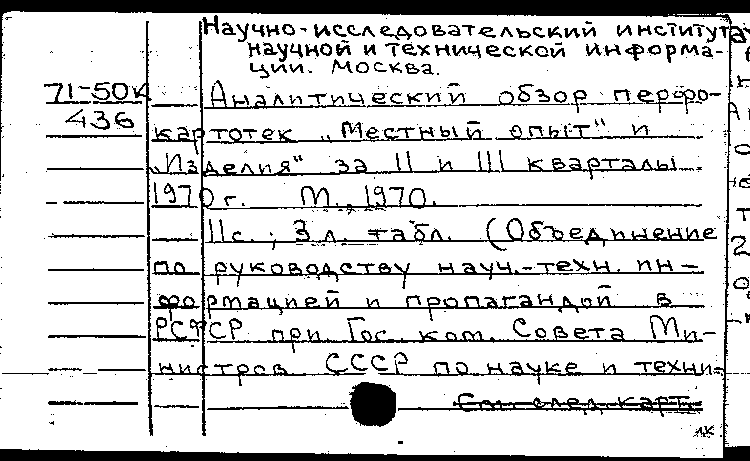 Научно-исследовательский институт
научной и технической информа-
ции. Москва.
71-50к
436
Аналитический обзор перфо-
картотек „Местный опыт" и
„Изделия" за II и III кварталы
1970 г. М., 1970.
11 с.; 3 л. табл. (Объединение
по руководству науч.-техн. ин-
формацией и пропагандой в
РСФСР при Гос. ком. Совета Ми-
нистров СССР по науке и техни-
См. след. карт.